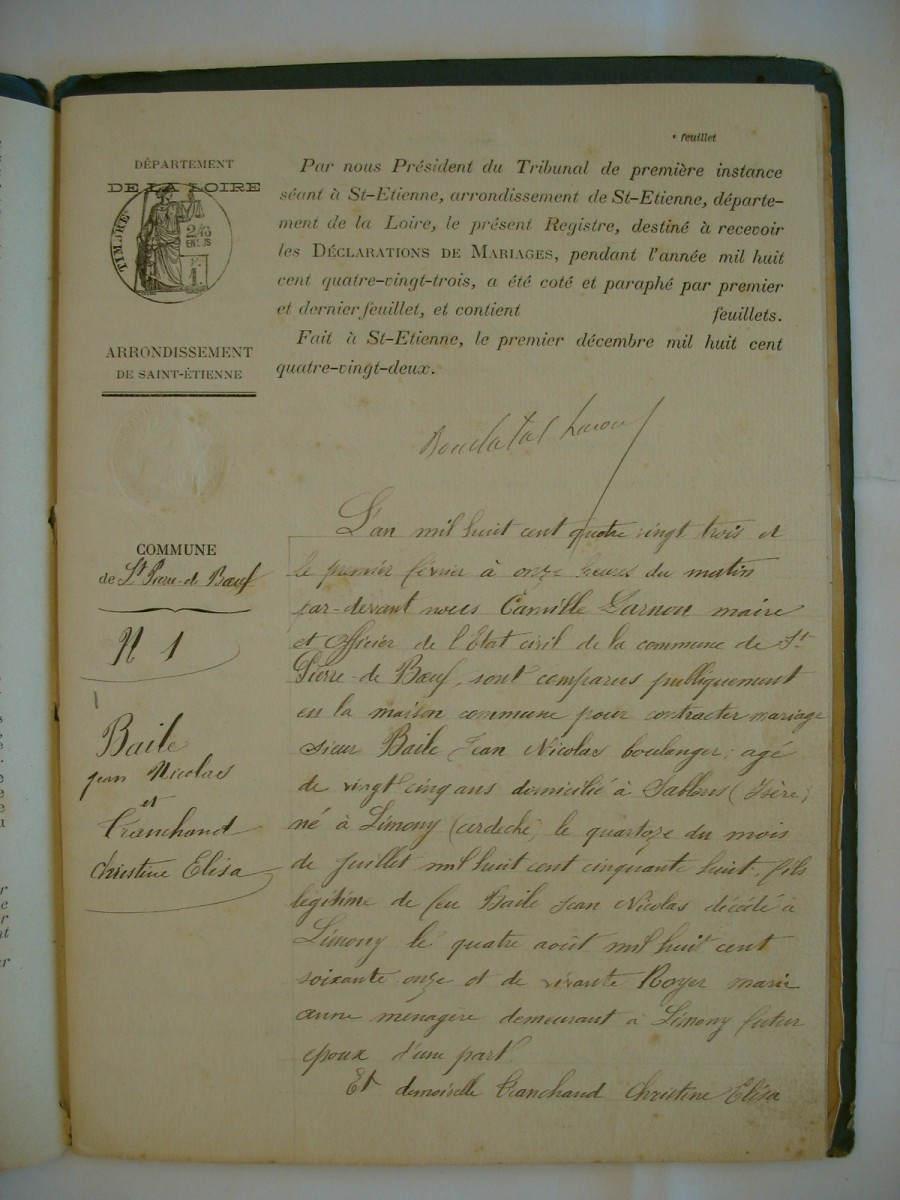 feuillet
DÉPARTEMENT
DE LA LOIRE
TIMBRE
ARRONDISSEMENT
DE SAINT-ÉTIENNE
Par nous Président du Tribunal de première instance
séant à St-Etienne, arrondissement de St-Etienne, départe-
ment de la Loire, le présent Registre, destiné à recevoir
les DÉCLARATIONS DE MARIAGES, pendant l'année mil huit
cent quatre-vingt-trois, a été coté et paraphé par premier
et dernier feuillet, et contient feuillets.
Fait à St-Etienne, le premier décembre mil huit cent
quatre-vingt-deux.
COMMUNE
de St Pierre-de Bœuf
N 1
Baile
Jean Nicolas
et
Tranchand
Christine Elisa
L'an mil huit cent quatre vingt trois et
le premier février à onze heures du matin
par-devant nous Camille Garnon maire
et Officier de l'Etat civil de la commune de St
Pierre-de Bœuf, sont comparus publiquement
en la maison commune pour contracter mariage
sieur Baile Jean Nicolas boulanger, agé
de vingt cinq ans domicilié à Sablons (Isère)
né à Limony (ardeche) le quatorze du mois
de juillet mil huit cent cinquante huit, fils
légitime de feu Baile Jean Nicolas décédé à
Limony le quatre août mil huit cent
soixante onze et de vivante Royer marie
anne ménagère demeurant à Limony futur
époux d'une part.
Et demoiselle Tranchand Christine Elisa